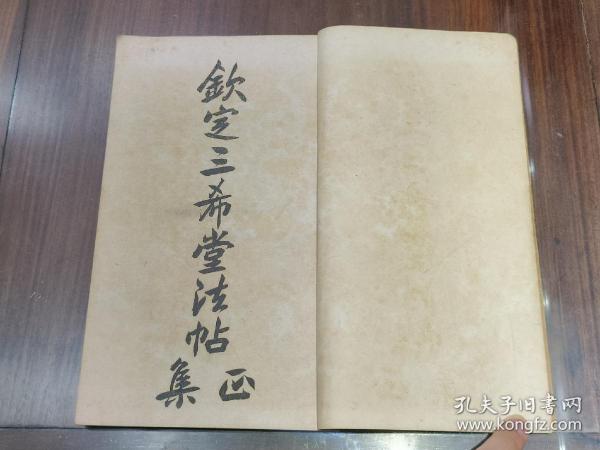 欽定三希堂法帖
正集
孔夫子旧书网
www.kongfz.com